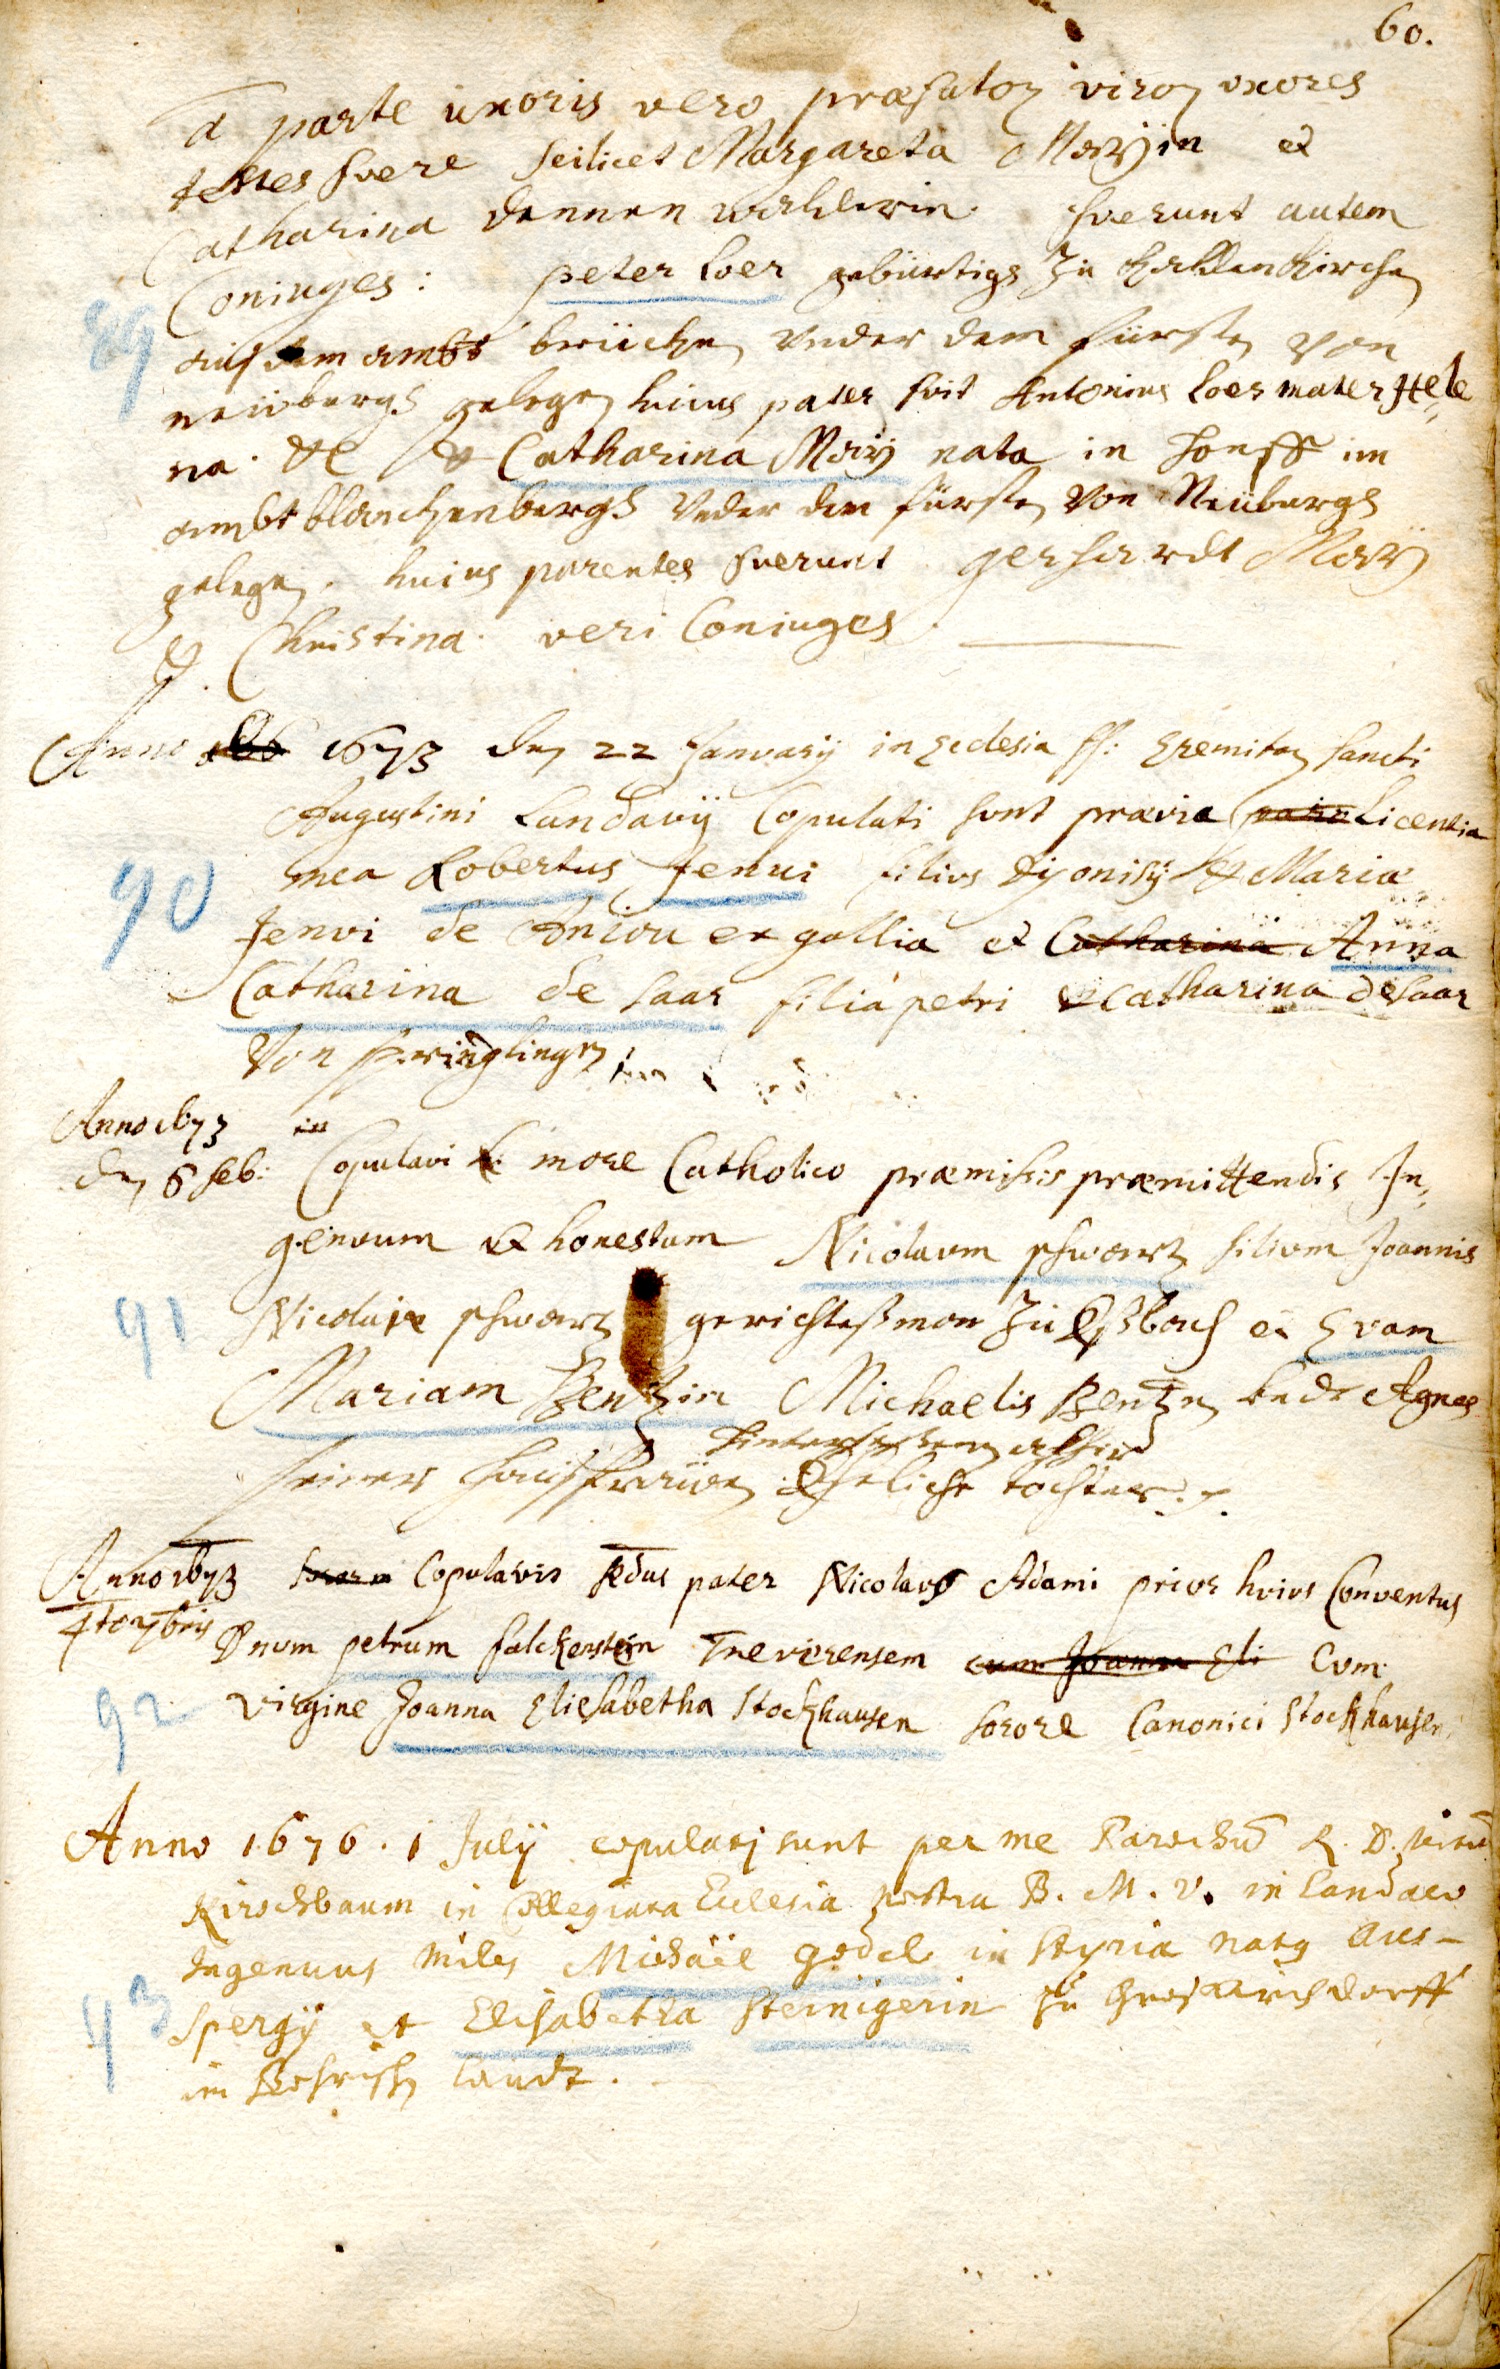 60.
a parte uxoris vero præfatoꝝ viroꝝ uxores
testes fuere scilicet Margareta Maÿin et
Catharina fuerunt autem
Coniuges: peter Loer gebürtigh zu
89
auß dem ambt brüchen under dem fürsten von
neuburgh gelegen huius pater fuit Antonius Loer mater Hele„
na. et Catharina Maÿ nata in Honff im
ambt blanckenbergh under dem fürsten von Neuburgh
gelegen. huius parentes fuerunt gerhardt Maÿ
& Christina. veri Coniuges.
Anno 1673 den 22 Januarij in Ecclesia ff: Eremitaꝝ sancti
Augustini Landavij Copulati sunt prævia Licentia
90
mea Robertus Jenui filius Dyonisij & Mariæ
Jenvi de Aniou ex gallia et Catharina Anna
Catharina de saar filia petri & Catharina de saar
Von
Anno 1673 in
den 6 feb: Copulavi more Catholico præmissis præmittendis In„
genuum & honestum Nicolaum schwartz filium Joannis
91
Nicolai schwartz gerichtßman zu et Evam
Mariam Bentzin Michaelis Bentzen undt Agnes
hintersassen alhier
seiner haußfrauwen Eheliche tochter.
Anno 1673 Copulavit Rdus pater Nicolaus Adami prior huius Conventus
4to 7bris
Dnum petrum falckenstein Trevirensem cum Joanna Eli Cum
92
virgine Joanna Eliesabetha Stockhausen sorore Canonici Stockhausen
Anno 1676. 1 Julij copulatj sunt per me Parochũ R. D.
Kirschbaum in Collegiata Ecclesia nostra B. M. V. in Landaw
Ingenuus miles Michäel gödel in Styria natꝯ Aues-
93
spergij et Elisabetha Steinigerin zu Großkirchdorff
im landt.